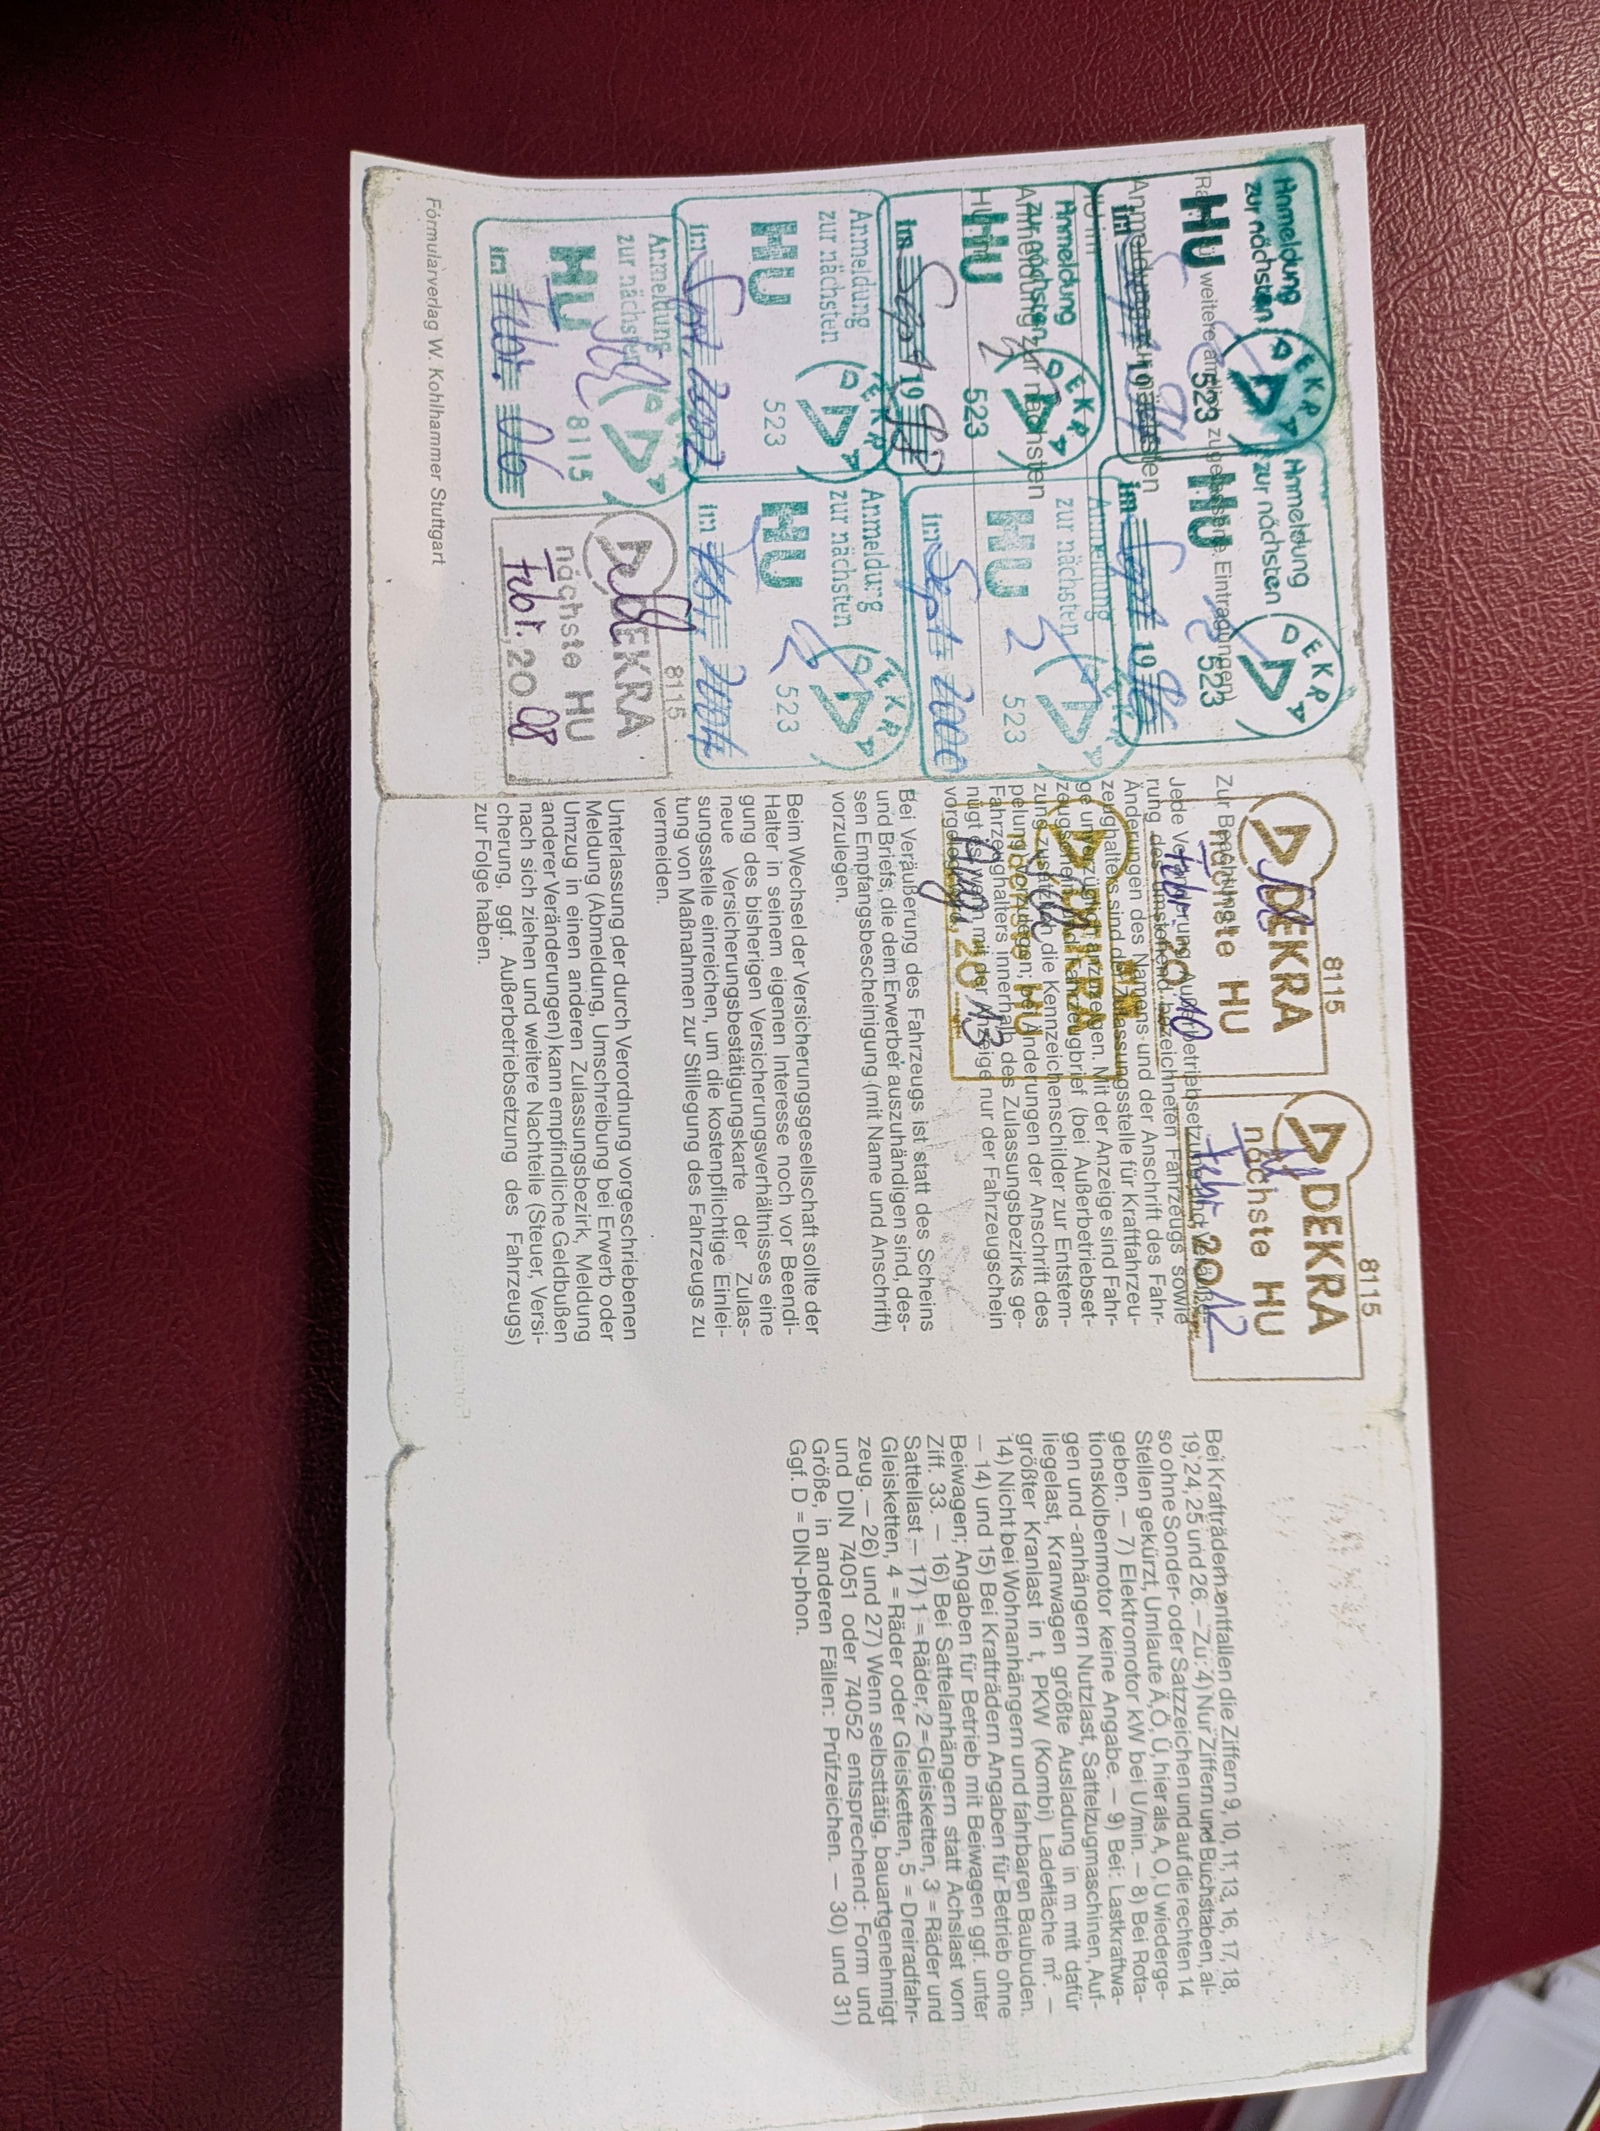 Anmeldung
zur nächsten
HU
523
im Sept. 19
DEKRA
Anmeldung
zur nächsten
HU
523
im Sept. 1996
DEKRA
Anmeldung
zur nächsten
HU
523
im Sept. 19
DEKRA
Anmeldung
zur nächsten
HU
523
im Sept. 2000
DEKRA
Anmeldung
zur nächsten
HU
523
im Sept. 2002
DEKRA
Anmeldung
zur nächsten
HU
523
im 2004
DEKRA
Anmeldung
zur nächsten
HU
8115
im Febr. 06
8115
DEKRA
nächste HU
Febr. 20 08
Formularverlag W. Kohlhammer Stuttgart
8115
DEKRA
nächste HU
Febr. 10
8115
DEKRA
nächste HU
Febr. 2012
DEKRA
HU
Aug. 20 13
zur
Jede
rung des umstehend bezeichneten Fahrzeugs sowie
Änderungen des Namens und der Anschrift des Fahr-
zeughalters sind der Zulassungsstelle für Kraftfahrzeu-
ge unverzüglich anzuzeigen. Mit der Anzeige sind Fahr-
(bei Außerbetriebset-
zung zusätzlich die Kennzeichenschilder zur Entstem-
bei Änderungen der Anschrift des
Fahrzeughalters innerhalb des Zulassungsbezirks ge-
nügt es, wenn mit der Anzeige nur der Fahrzeugschein
vorgelegt
Bei Veräußerung des Fahrzeugs ist statt des Scheins
und Briefs, die dem Erwerber auszuhändigen sind, des-
sen Empfangsbescheinigung (mit Name und Anschrift)
vorzulegen.
Beim Wechsel der Versicherungsgesellschaft sollte der
Halter in seinem eigenen Interesse noch vor Beendi-
gung des bisherigen Versicherungsverhältnisses eine
neue Versicherungsbestätigungskarte der Zulas-
sungsstelle einreichen, um die kostenpflichtige Einlei-
tung von Maßnahmen zur Stillegung des Fahrzeugs zu
vermeiden.
Unterlassung der durch Verordnung vorgeschriebenen
Meldung (Abmeldung, Umschreibung bei Erwerb oder
Umzug in einen anderen Zulassungsbezirk, Meldung
anderer Veränderungen) kann empfindliche Geldbußen
nach sich ziehen und weitere Nachteile (Steuer, Versi-
cherung, ggf. Außerbetriebsetzung des Fahrzeugs)
zur Folge haben.
Bei Krafträdern entfallen die Ziffern 9, 10, 11, 13, 16, 17, 18,
19, 24, 25 und 26. – Zu: 4) Nur Ziffern und Buchstaben, al-
so ohne Sonder- oder Satzzeichen und auf die rechten 14
Stellen gekürzt, Umlaute Ä, Ö, Ü, hier als A, O, U wiederge-
geben. – 7) Elektromotor kW bei U/min. – 8) Bei Rota-
tionskolbenmotor keine Angabe. – 9) Bei: Lastkraftwa-
gen und -anhängern Nutzlast, Sattelzugmaschinen, Auf-
liegelast, Kranwagen größte Ausladung in m mit dafür
größter Kranlast in t, PKW (Kombi) Ladefläche m². –
14) Nicht bei Wohnanhängern und fahrbaren Baubuden.
– 14) und 15) Bei Krafträdern Angaben für Betrieb ohne
Beiwagen; Angaben für Betrieb mit Beiwagen ggf. unter
Ziff. 33. – 16) Bei Sattelanhängern statt Achslast vorn
Sattellast. – 17) 1 = Räder, 2 = Gleisketten, 3 = Räder und
Gleisketten, 4 = Räder oder Gleisketten, 5 = Dreiradfahr-
zeug. – 26) und 27) Wenn selbsttätig, bauartgenehmigt
und DIN 74051 oder 74052 entsprechend: Form und
Größe, in anderen Fällen: Prüfzeichen. – 30) und 31)
Ggf. D = DIN-phon.